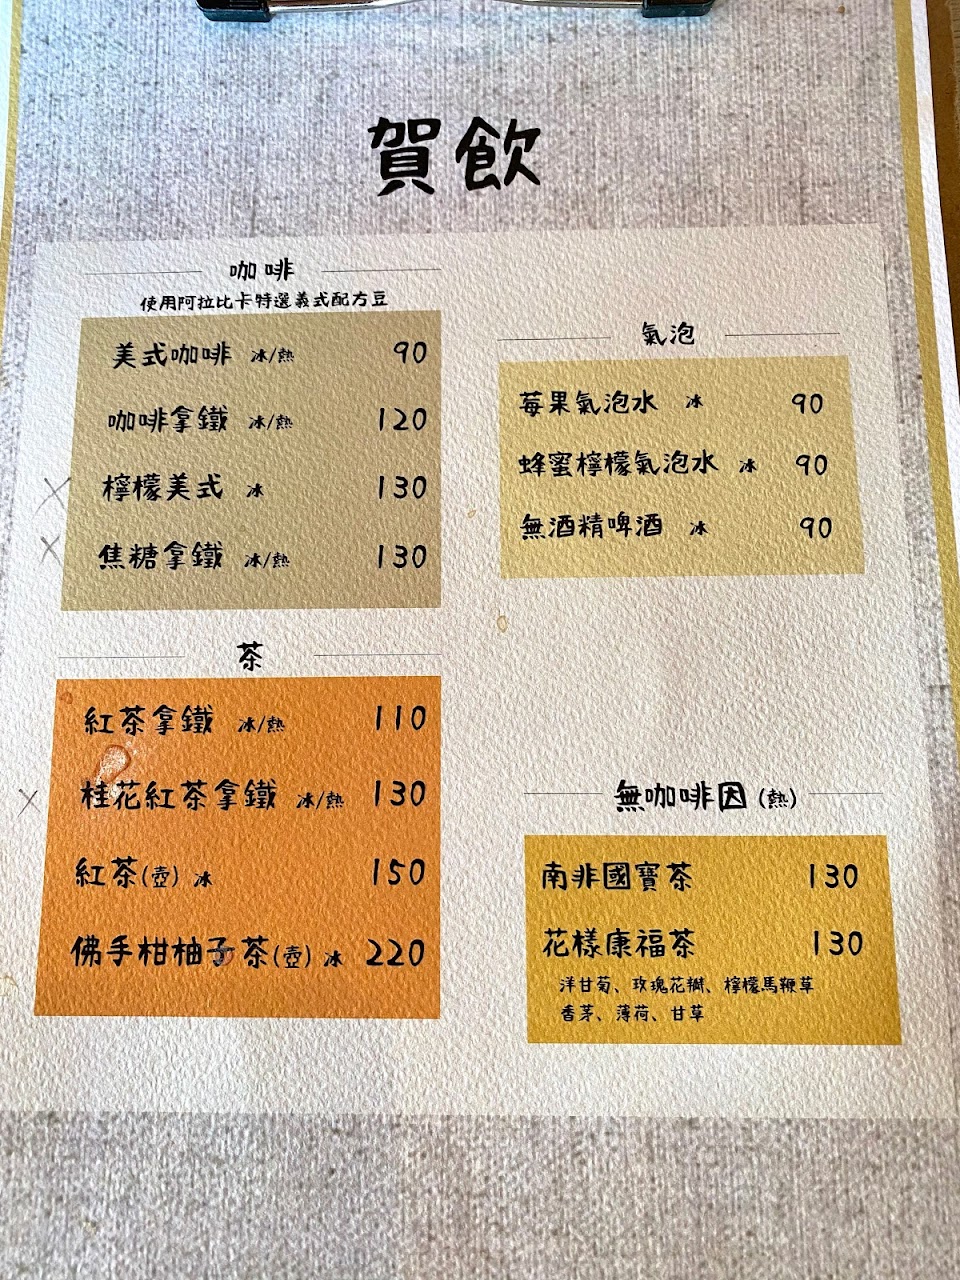 賀飲
咖啡
使用阿拉比卡特選義式配方豆
美式咖啡 冰/熱 90
咖啡拿鐵 冰/熱 120
檸檬美式 冰 130
焦糖拿鐵 冰/熱 130
茶
紅茶拿鐵 冰/熱 110
桂花紅茶拿鐵 冰/熱 130
紅茶(壺) 冰 150
佛手柑柚子茶(壺) 冰 220
氣泡
莓果氣泡水 冰 90
蜂蜜檸檬氣泡水 冰 90
無酒精啤酒 冰 90
無咖啡因(熱)
南非國寶茶 130
花樣康福茶 130
洋甘菊、玫瑰花瓣、檸檬馬鞭草
香茅、薄荷、甘草